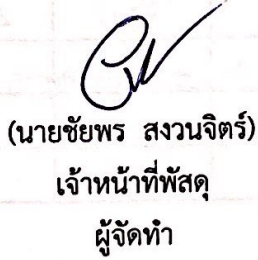 (นายชัยพร สงวนจิตร์)
เจ้าหน้าที่พัสดุ
ผู้จัดทำ